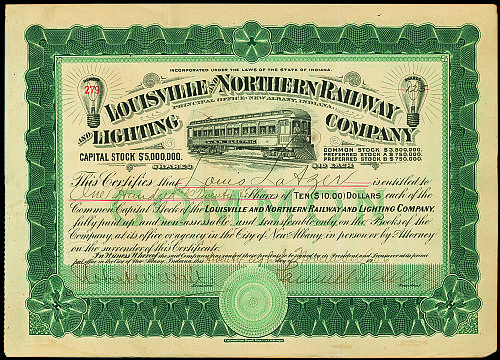 INCORPORATED UNDER THE LAWS OF THE STATE OF INDIANA.
279
LOUISVILLE AND NORTHERN RAILWAY
PRINCIPAL OFFICE - NEW ALBANY, INDIANA.
AND LIGHTING COMPANY
CAPITAL STOCK $5,000,000.
COMMON STOCK $3,500,000.
PREFERRED STOCK A $750,000
PREFERRED STOCK B $750,000
SHARES $10 EACH
This Certifies that Louis is entitled to
One Hundred Shares of TEN ($10.00) DOLLARS each of the
Common Capital Stock of the LOUISVILLE AND NORTHERN RAILWAY AND LIGHTING COMPANY,
fully paid up and non-assessable, and transferable only on the Books of the
Company at its office or agency in the City of New Albany, in person or by Attorney
on the surrender of this Certificate.
In Witness Whereof the said Company has caused these presents to be signed by its President and Treasurer at its
office in the City of New Albany, Indiana this day of